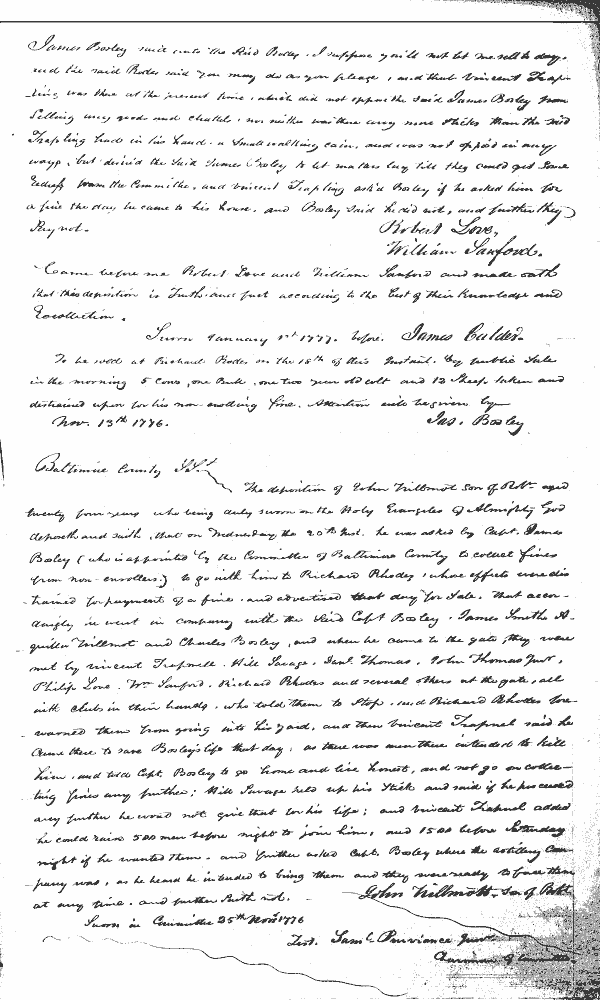 James Bosley said unto the said Rodes. I suppose you'll not let me sell to day,
and the said Rodes said you may do as you please, and that Vincent Trap-
ling was there at the present time, which did not oppose the said James Bosley from
Selling any goods and chattels, nor neither was there any more sticks than the said
Trapling had in his hand, a small walking cain, and was not opposed in any
ways, but desired the said James Bosley to let matters lay till they could get some
Redress from the Committe, and Vincent Trapling ask'd Bosley if he asked him for
a fine the day he came to his house, and Bosley said he did not, and further they
Say not.
Robert Love,
William Sanford.
Came before me Robert Love and William Sanford and made oath
that this deposition is Truth and just according to the best of their knowledge and
Recollection.
Sworn January 1st 1777. before. James Calder.
To be sold at Richard Rodes on the 18th of this Instant. by public Sale
in the morning 5 Cows, one Bull, one two year old colt and 12 Sheep, taken and
distrained upon for his non-enrolling fine. Attention will be given by
Nov. 13th 1776.
Jas. Bosley
Baltimore County Sst
The deposition of John Willmot son of Robt. aged
twenty four years who being duly sworn on the Holy Evangels of Almighty God
deposeth and saith, that on Wednesday the 20th Inst. he was asked by Capt. James
Bosley (who is appointed by the Committee of Baltimore County to collect fines
from non-enrollers;) to go with him to Richard Rhodes, whose effects were dis
trained for payment of a fine, and advertised that day for Sale. That accor-
dingly he went in company with the said Capt Bosley, James Smith, A-
quilla Willmot and Charles Bosley, and when he came to the gate, they were
met by Vincent Trapnell, Will Savage, Danl. Thomas, John Thomas Junr,
Philip Love, Wm Sanford, Richard Rhodes and several others at the gate, all
with clubs in their hands, who told them to stop, and Richard Rhodes fore-
warned them from going into his yard, and then Vincent Trapnel said he
came there to save Bosley's life that day: as there was men there intended to kill
him, and told Capt. Bosley to go home and live honest, and not go on collec-
ting fines any further; Will Savage held up his Stick and said if he proceeded
any further he would not give that for his life; and Vincent Trapnel added
he could raise 500 men before night to join him, and 1500 before Saturday
night if he wanted them. and further asked Capt. Bosley where the artillery Com-
pany was, as he heard he intended to bring them and they were ready to face them
at any time. and further saith not.
John Willmott. Son of Robt
Sworn in Committee 25th Novr 1776
Test. Saml. Purviance Junr
Chairman of Committee